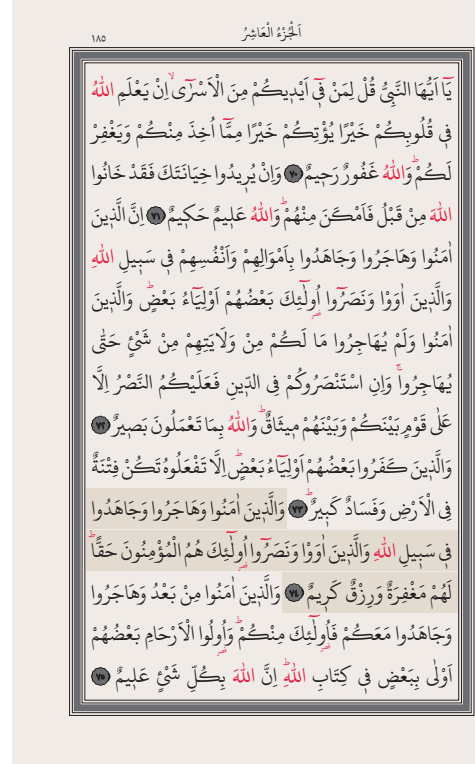 اَلْجُزْءُ الْعَاشِرُ
١٨٥
يَٓا اَيُّهَا النَّبِيُّ قُلْ لِمَنْ فٖٓي اَيْدٖيكُمْ مِنَ الْاَسْرٰٓىۙ اِنْ يَعْلَمِ اللّٰهُ
فٖي قُلُوبِكُمْ خَيْرًا يُؤْتِكُمْ خَيْرًا مِمَّٓا اُخِذَ مِنْكُمْ وَيَغْفِرْ
لَكُمْؕ وَاللّٰهُ غَفُورٌ رَحٖيمٌ ﴿٧٠﴾ وَاِنْ يُرٖيدُوا خِيَانَتَكَ فَقَدْ خَانُوا
اللّٰهَ مِنْ قَبْلُ فَاَمْكَنَ مِنْهُمْؕ وَاللّٰهُ عَلٖيمٌ حَكٖيمٌ ﴿٧١﴾ اِنَّ الَّذٖينَ
اٰمَنُوا وَهَاجَرُوا وَجَاهَدُوا بِاَمْوَالِهِمْ وَاَنْفُسِهِمْ فٖي سَبٖيلِ اللّٰهِ
وَالَّذٖينَ اٰوَوْا وَنَصَرُٓوا اُو۬لٰٓئِكَ بَعْضُهُمْ اَوْلِيَٓاءُ بَعْضٍؕ وَالَّذٖينَ
اٰمَنُوا وَلَمْ يُهَاجِرُوا مَا لَكُمْ مِنْ وَلَايَتِهِمْ مِنْ شَيْءٍ حَتّٰى
يُهَاجِرُواۚ وَاِنِ اسْتَنْصَرُوكُمْ فِي الدّٖينِ فَعَلَيْكُمُ النَّصْرُ اِلَّا
عَلٰى قَوْمٍ بَيْنَكُمْ وَبَيْنَهُمْ مٖيثَاقٌؕ وَاللّٰهُ بِمَا تَعْمَلُونَ بَصٖيرٌ ﴿٧٢﴾
وَالَّذٖينَ كَفَرُوا بَعْضُهُمْ اَوْلِيَٓاءُ بَعْضٍؕ اِلَّا تَفْعَلُوهُ تَكُنْ فِتْنَةٌ
فِي الْاَرْضِ وَفَسَادٌ كَبٖيرٌؕ ﴿٧٣﴾ وَالَّذٖينَ اٰمَنُوا وَهَاجَرُوا وَجَاهَدُوا
فٖي سَبٖيلِ اللّٰهِ وَالَّذٖينَ اٰوَوْا وَنَصَرُٓوا اُو۬لٰٓئِكَ هُمُ الْمُؤْمِنُونَ حَقًّاؕ
لَهُمْ مَغْفِرَةٌ وَرِزْقٌ كَرٖيمٌ ﴿٧٤﴾ وَالَّذٖينَ اٰمَنُوا مِنْ بَعْدُ وَهَاجَرُوا
وَجَاهَدُوا مَعَكُمْ فَاُو۬لٰٓئِكَ مِنْكُمْؕ وَاُو۬لُوا الْاَرْحَامِ بَعْضُهُمْ
اَوْلٰى بِبَعْضٍ فٖي كِتَابِ اللّٰهِؕ اِنَّ اللّٰهَ بِكُلِّ شَيْءٍ عَلٖيمٌ ﴿٧٥﴾